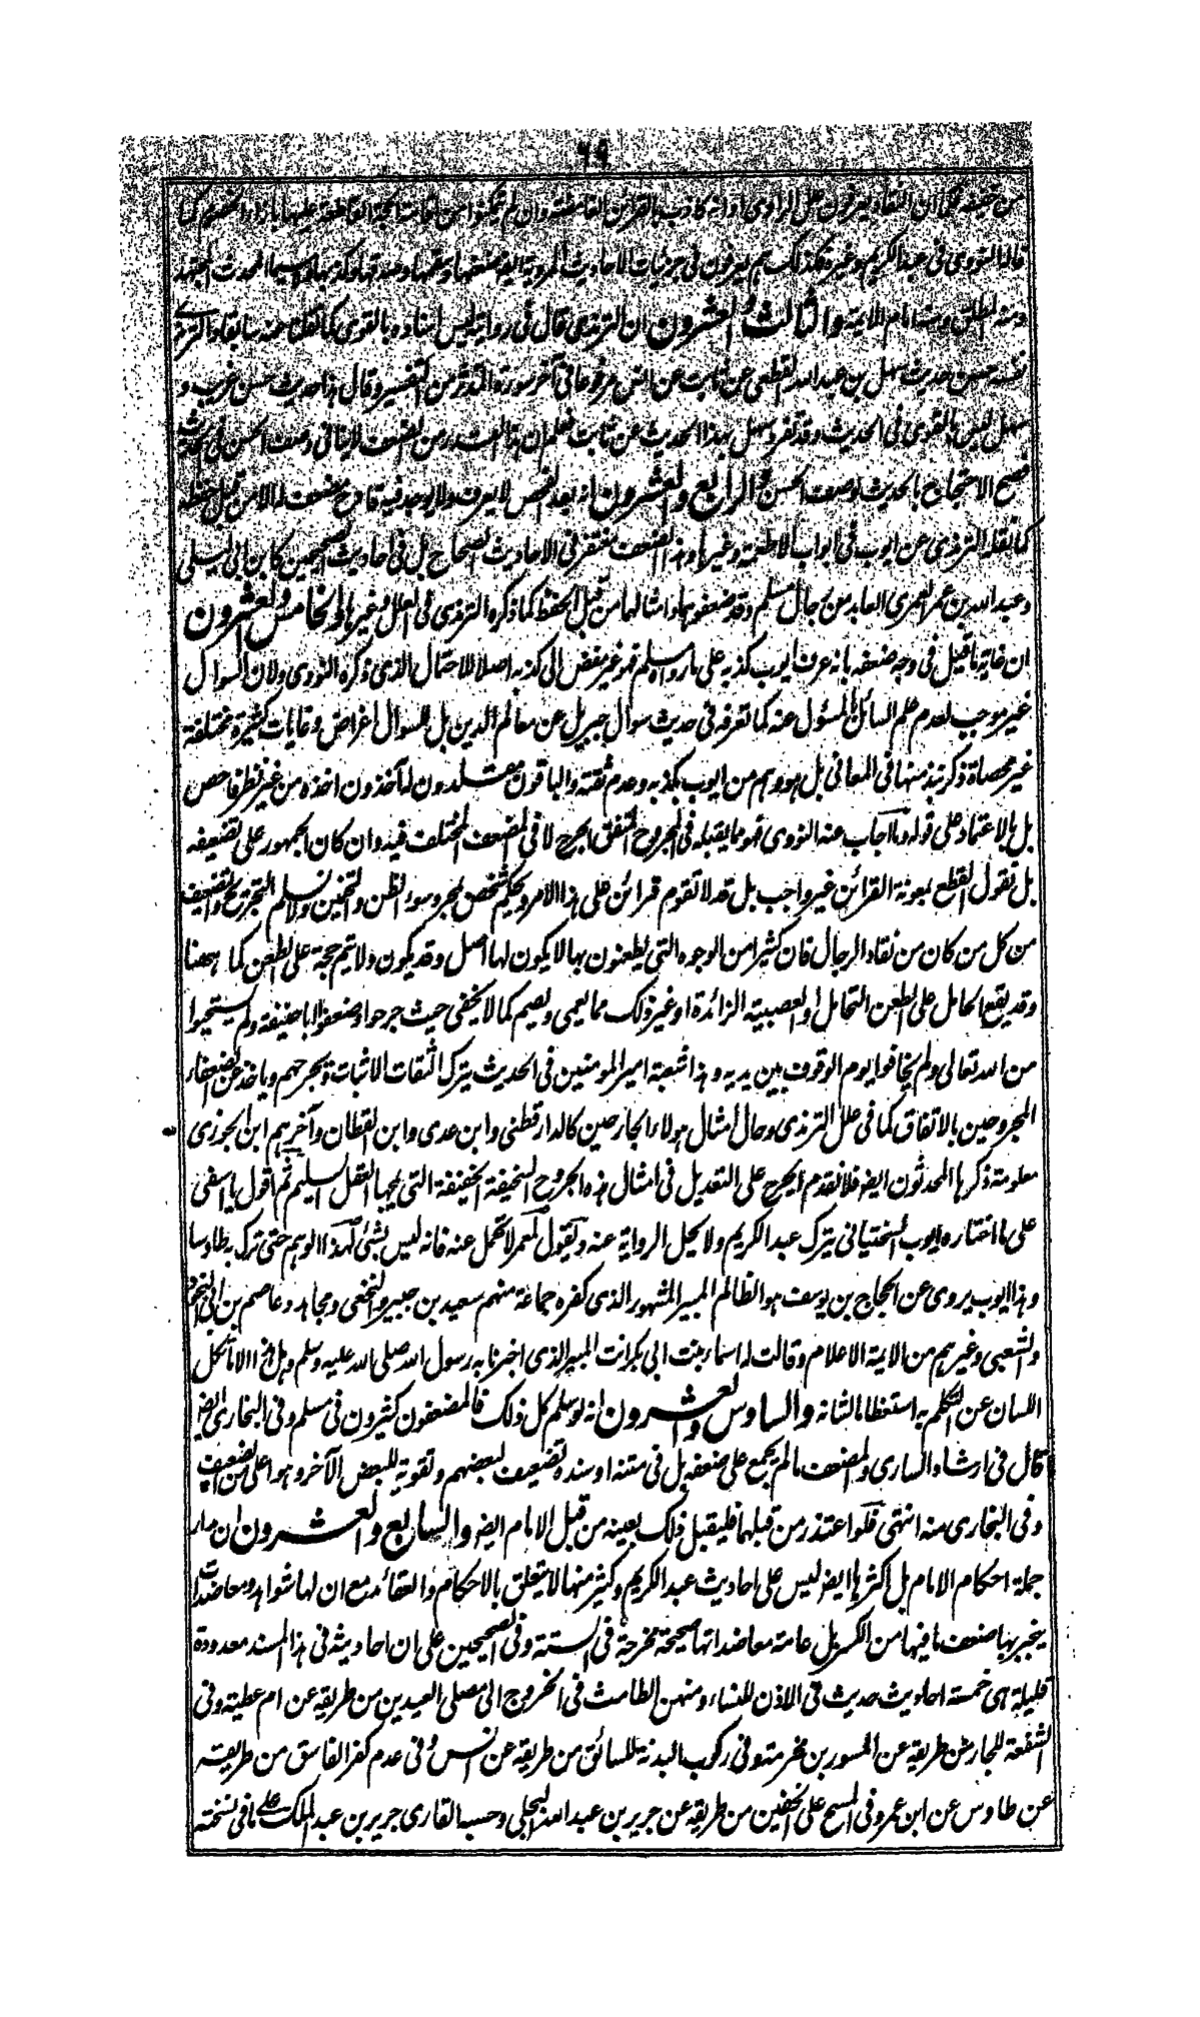 ٦٩
من حقيقة كما ان النقاد يعرفون حال الراوى وانه كاذب بالقرائن الغامضة وان لم يتمكنوا من اقامة الحجة القاطعة عليها بازاء الخصم كما
قال النووى فى عبد الكريم وغيره فكذلك هم يعرفون فى جزئيات الاحاديث المروية ايضا ضعفها وسقمها وصدقها وكذبها لا سيما المحدث المجتهد
المطلق امام الائمة والثالث والعشرون ان الترمذى قال فى رواية ليس اسناده بالقوى كما نقلنا عنه سابقا والترمذى
نفسه حسن حديث سهل بن عبد الله القطعى عن ثابت عن انس مرفوعا فى آخر سورة المدثر من التفسير وقال هذا حديث حسن غريب و
سهل ليس بالقوى فى الحديث وقد تفرد سهل بهذا الحديث عن ثابت فعلم ان هذا القدر من الضعف لا ينافى وصف الحسن فى الحديث
فصح الاحتجاج بالحديث لوصف الحسن والرابع والعشرون انه بعد الفحص لا يعرف ولا يوجد فيه قادح مضعف له الا من قبل حفظه
كما نقله الترمذى عن ايوب فى ابواب الاطعمة وغيرها وهذا الضعف مغتفر فى الاحاديث الصحاح بل فى احاديث الصحيحين كابن ابى ليلى
وعبد الله بن عمر العمرى العابد من رجال مسلم وقد ضعفوهما وامثالهما من قبل الحفظ كما ذكره الترمذى فى العلل وغيرها والخامس والعشرون
ان غاية ما قيل فى وجه ضعفه بانه عرف ايوب كذبه على ما رواه مسلم فهو غير مفض الى كذبه اصلا للاحتمال الذى ذكره النووى ولان السوال
غير موجب لعدم علم السائل بالمسئول عنه كما تعرفه فى حديث سوال جبريل عن معالم الدين بل للسوال اغراض وغايات كثيرة مختلفة
غير محصاة ذكر نبذ منها فى المعانى بل هو وهم من ايوب بكذبه وعدم ثقته والباقون مقلدون له آخذون اخذه من غير نظر فاحص
بل بالاعتماد على قوله وما اجاب عنه النووى فهو ما يقبله فى المجروح المتفق الجرح لا فى المضعف المختلف فيه وان كان الجمهور على تضعيفه
بل نقول القطع بمعونة القرائن غير واجب بل قد لا تقوم قرائن على هذا الامر ويحكم شخص بمجرد سوء الظن والتخمين ولا نسلم التجريح والتضعيف
من كل من كان من نقاد الرجال فان كثيرا من الوجوه التى يطعنون بها لا يكون لها اصل وقد يكون ولا يتم حجة على الطعن كما ههنا
وقد يقع الحامل على الطعن التحامل والعصبية الزائدة او غير ذلك مما يعمى ويصم كما لا يخفى حيث جرحوا وضعفوا ابا حنيفة ولم يستحيوا
من الله تعالى ولم يخافوا يوم الوقوف بين يديه وهذا شعبة امير المومنين فى الحديث يترك الثقات الاثبات ويجرحهم وياخذ عن الضعفاء
المجروحين بالاتفاق كما فى علل الترمذى وحال امثال هولاء الجارحين كالدارقطنى وابن عدى وابن القطان وآخرهم ابن الجوزى
معلومة ذكرها المحدثون ايضا فلا نقدم الجرح على التعديل فى امثال هذه الجروح السخيفة الخفيفة التى يمجها العقل السليم ثم اقول يا اسفى
على ما اختاره ايوب السختيانى يترك عبد الكريم ولا يحل الرواية عنه ويقول لمعمر لا تحمل عنه فانه ليس بشئ لهذا الوهم حتى ترك به طاوسا
وهذا ايوب يروى عن الحجاج بن يوسف هو الظالم المبير المشهور الذى كفره جماعة منهم سعيد بن جبير والنخعى ومجاهد وعاصم بن ابى النجود
والشعبى وغيرهم من الائمة الاعلام وقالت له اسماء بنت ابى بكر انت المبير الذى اخبرنا به رسول الله صلى الله عليه وسلم وهل هذا الا ما تكل
اللسان عن التكلم به استعظاما لشانه والسادس والعشرون انه لو سلم كل ذلك فالمضعفون كثيرون فى مسلم وفى البخارى ايضا
قال فى ارشاد السارى والمضعف ما لم يجمع على ضعفه بل فى متنه او سنده تضعيف لبعضهم وتقوية للبعض الآخر وهو اعلى من الضعيف
وفى البخارى منه انتهى فلو اعتذر من قبلهما فليقبل ذلك بعينه من قبل الامام ايضا والسابع والعشرون ان مدار
جملة احكام الامام بل اكثرها ايضا ليس على احاديث عبد الكريم وكثير منها لا يتعلق بالاحكام والعقائد مع ان لها شواهد ومعاضدات
ينجبر بها ضعف ما فيها من الكسر بل عامة معاضداتها صحيحة مخرجة فى الستة وفى الصحيحين على ان احاديثه فى هذا المسند معدودة
قليلة هى خمسة احاديث حديث فى الاذن للنساء ومنهن الطامث فى الخروج الى مصلى العيدين من طريقه عن ام عطية وفى
الشفعة للجار عن طريقه عن المسور بن مخرمة وفى ركوب البدنة للسائق من طريقه عن انس وفى عدم كفر الفاسق من طريقه
عن طاوس عن ابن عمر وفى المسح على الخفين من طريقه عن جرير بن عبد الله البجلى وحسبه القارى جرير بن عبد الملك على ما فى نسخته